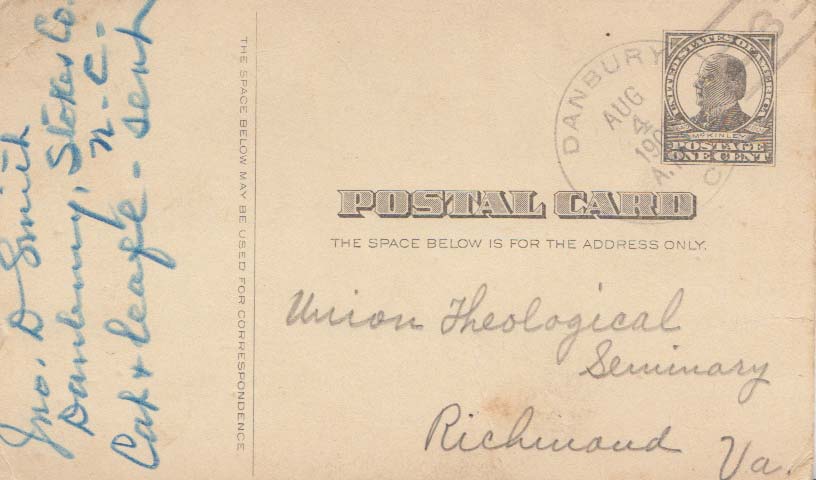 Jno. D Smith
Danbury, Stokes Co.
N. C.
Cat & leafe - sent
THE SPACE BELOW MAY BE USED FOR CORRESPONDENCE
DANBURY
AUG
4
190
A.M
C.
3
UNITED STATES OF AMERICA
McKINLEY
POSTAGE
ONE CENT
POSTAL CARD
THE SPACE BELOW IS FOR THE ADDRESS ONLY.
Union Theological
Seminary
Richmond Va.